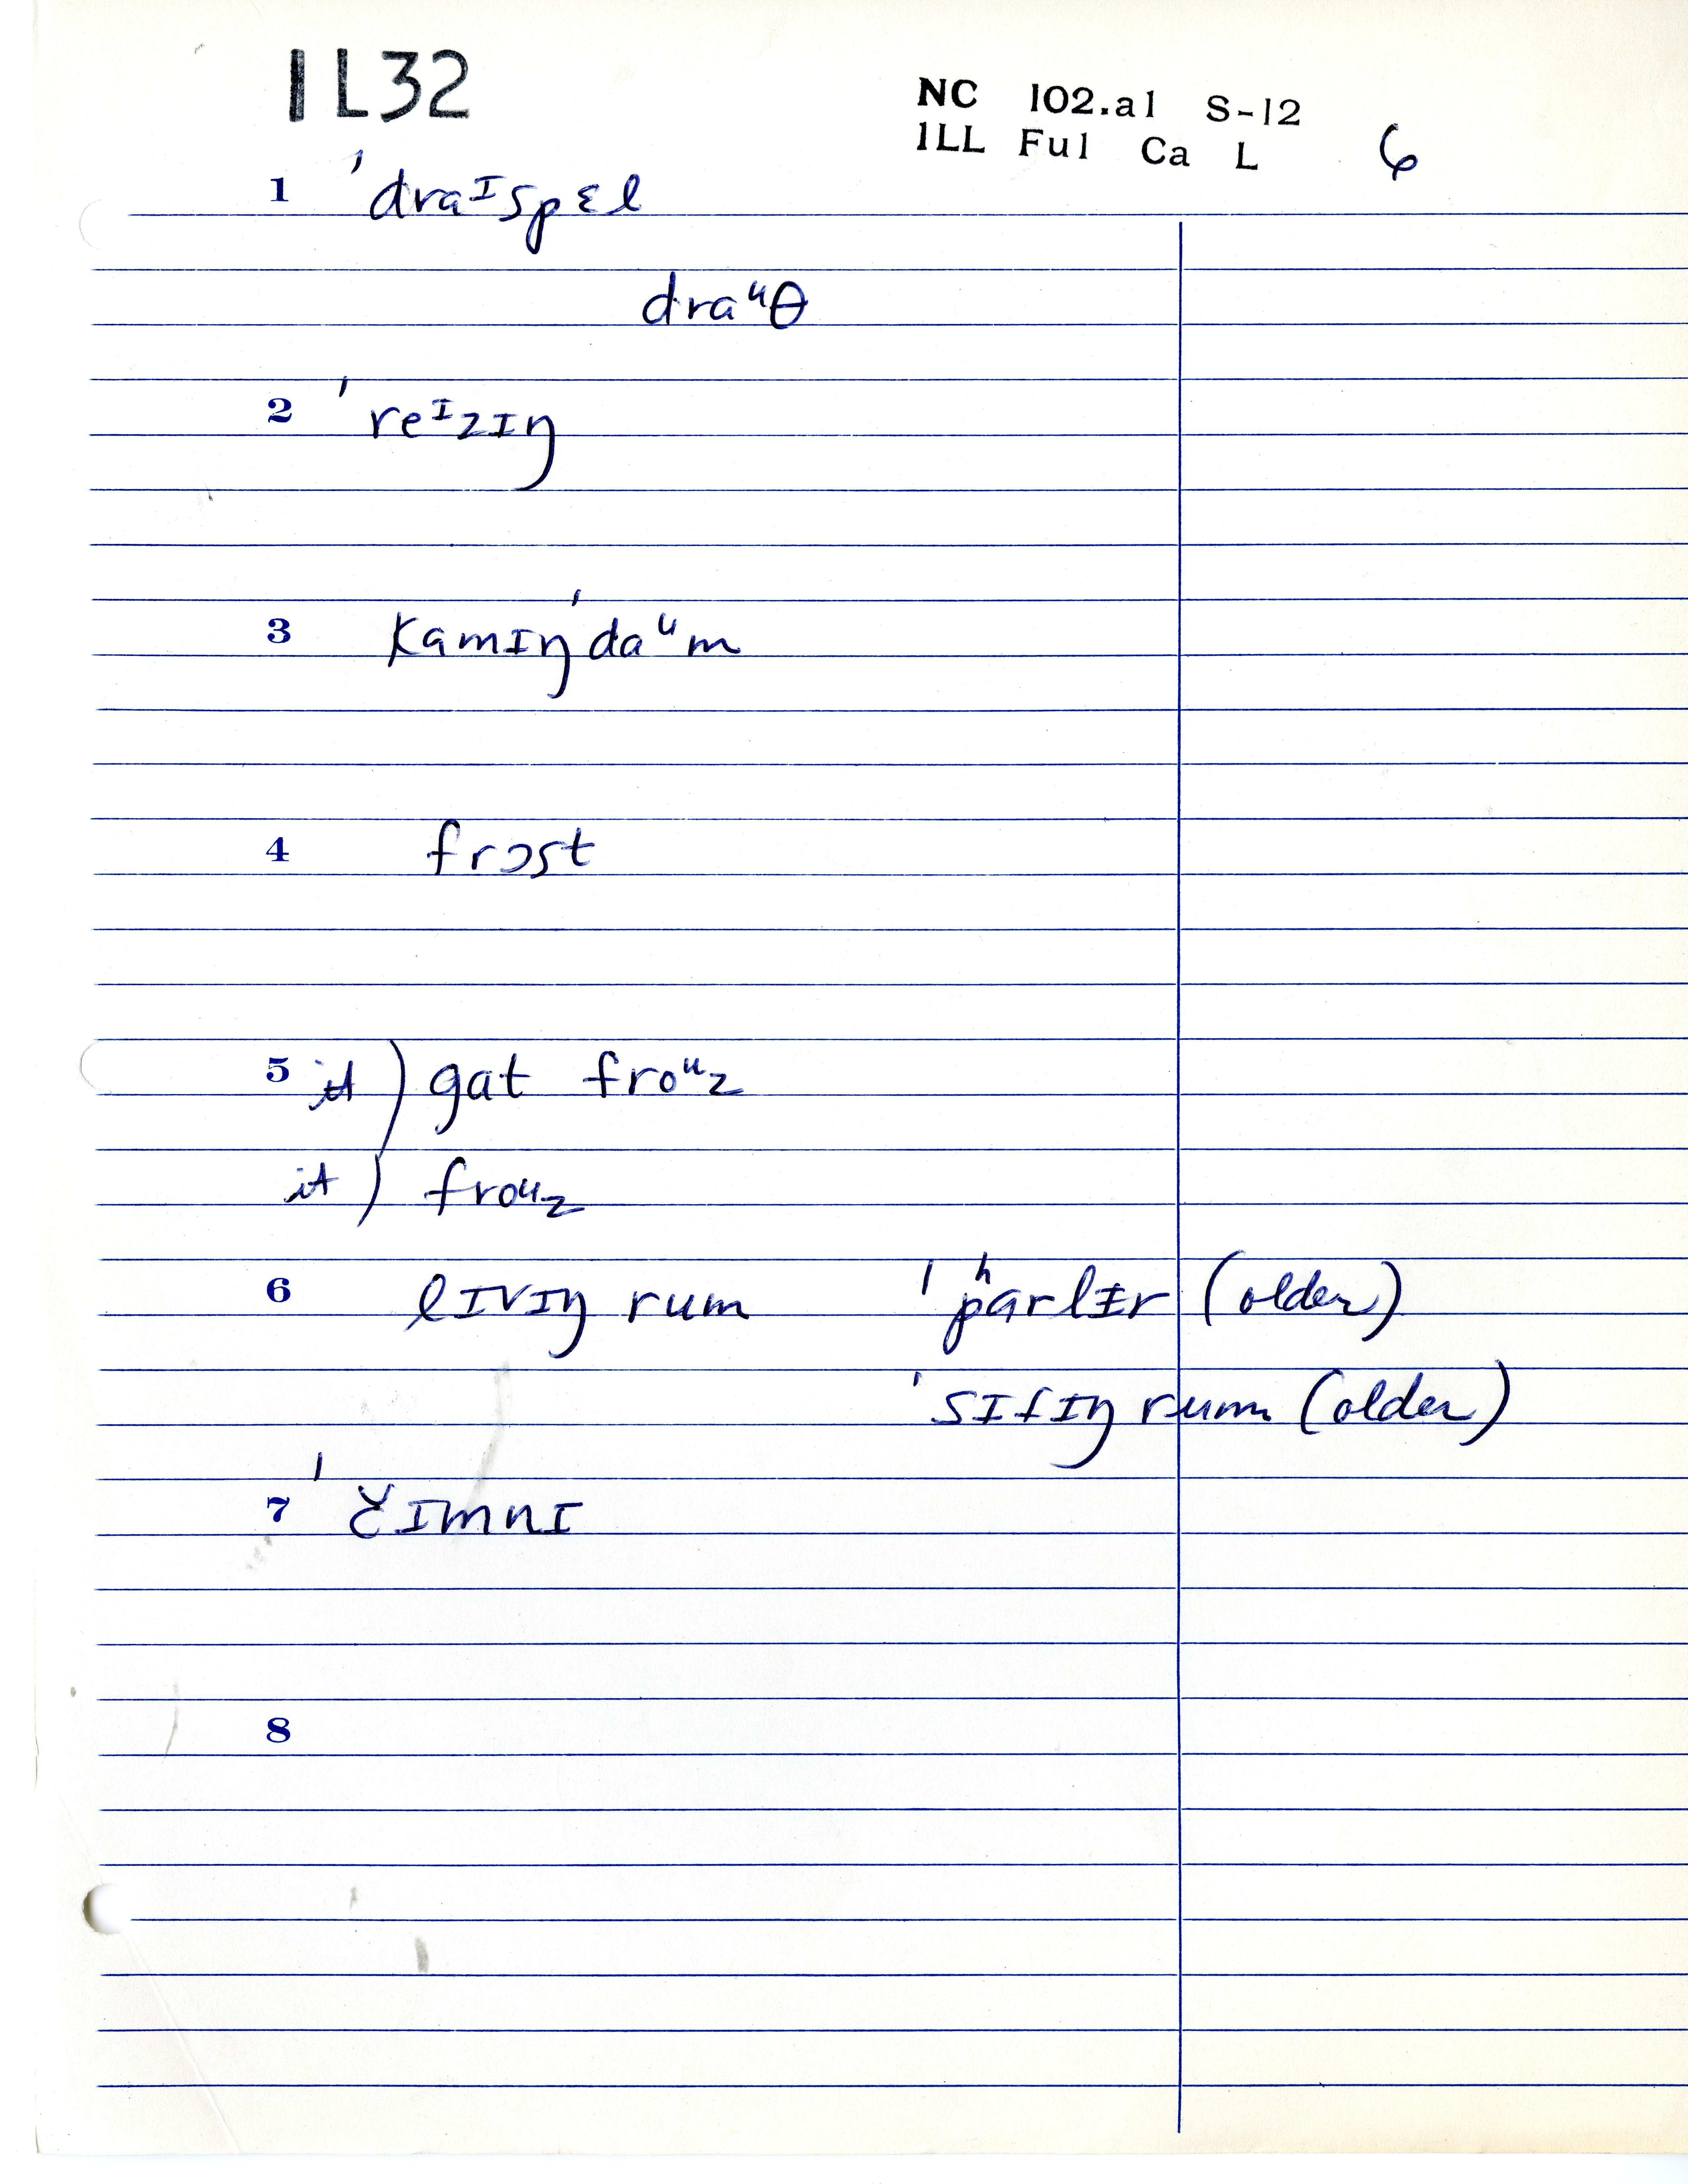 IL32
NC 102.a1 S-12
ILL Ful Ca L 6
1 'draᴵspɛl
draᵘθ
2 'reᴵzɪŋ
3 kamɪŋ'daᵘm
4 frɔst
5 it) gat froᵘz
it) froᵘz
6 lɪvɪŋ rum 'pʰarlɨr (older)
'sɪtɪŋ rum (older)
7 'čɪmnɪ
8